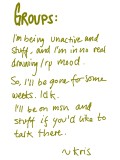 GROUPS:
I'm being unactive and
stuff, and I'm in no real
drawing/rp mood.
So, I'll be gone for some
weeks. Idk.
I'll be on msn and
stuff if you'd like to
talk there.
~Kris